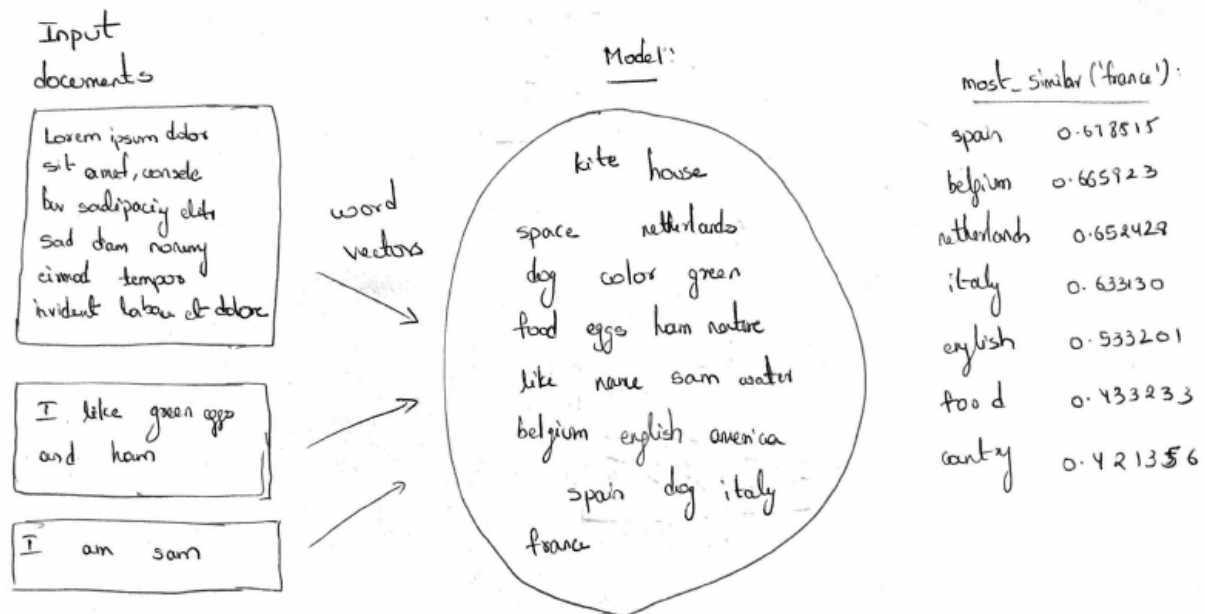 Input
documents
Lorem ipsum dolor
sit amet, consele
bur sadipaciy elitr
sad diam nonumy
eirmod tempor
invident labou et dolore
I like green eggs
and ham
I am sam
word
vectors
Model:
kite house
space netherlands
dog color green
food eggs ham nature
like name sam water
belgium english america
spain dog italy
france
most_similar('france'):
spain 0.678515
belgium 0.665923
netherlands 0.652428
italy 0.633130
english 0.533201
food 0.433233
country 0.421356